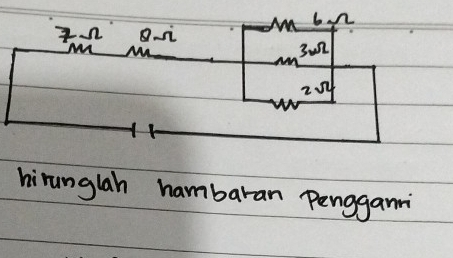 6 Ω
7 Ω 8 Ω
3 Ω
2 Ω
hitunglah hambatan Pengganti